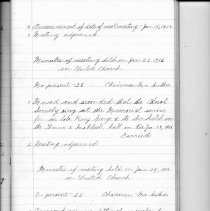 5 Announcement of date of next meeting - Jan 15, 1936
6 Meeting adjourned
Minutes of meeting held on Jan 22, 1936
in United Church
No present - 28 Chairman Mrs
1 Moved and seconded that the Choral
Society sing at the Memorial Service
for our late King George V to be held in
the Women's Institute hall on Jan 28, 1936
Carried
2 Meeting adjourned
Minutes of meeting held on Jan 29, 1936
in United Church
No present - 22 Chairman, Mrs